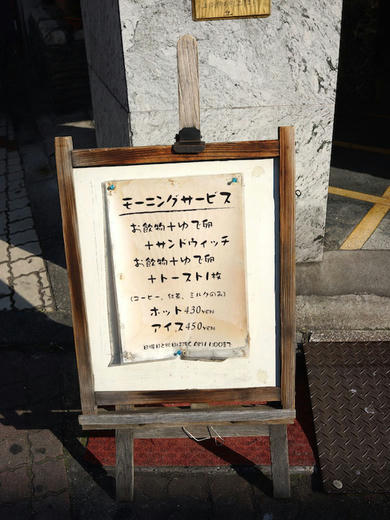 モーニングサービス
お飲物+ゆで卵
+サンドウィッチ
お飲物+ゆで卵
+トースト1枚
(コーヒー、紅茶、ミルクのみ)
ホット430YEN
アイス450YEN
日曜日と祝日は除く AM11:00まで